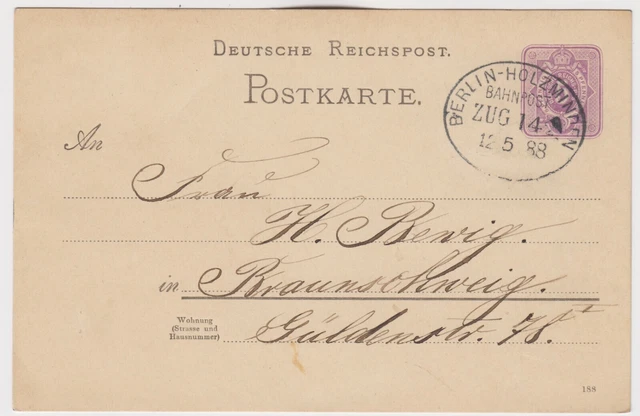 DEUTSCHE REICHSPOST.
POSTKARTE.
BERLIN-HOLZMINDEN
BAHNPOST
ZUG 14
12 5 88
An
Frau
H. Bewig.
in Braunschweig.
Wohnung
(Strasse und
Hausnummer)
Güldenstr. 78.
188